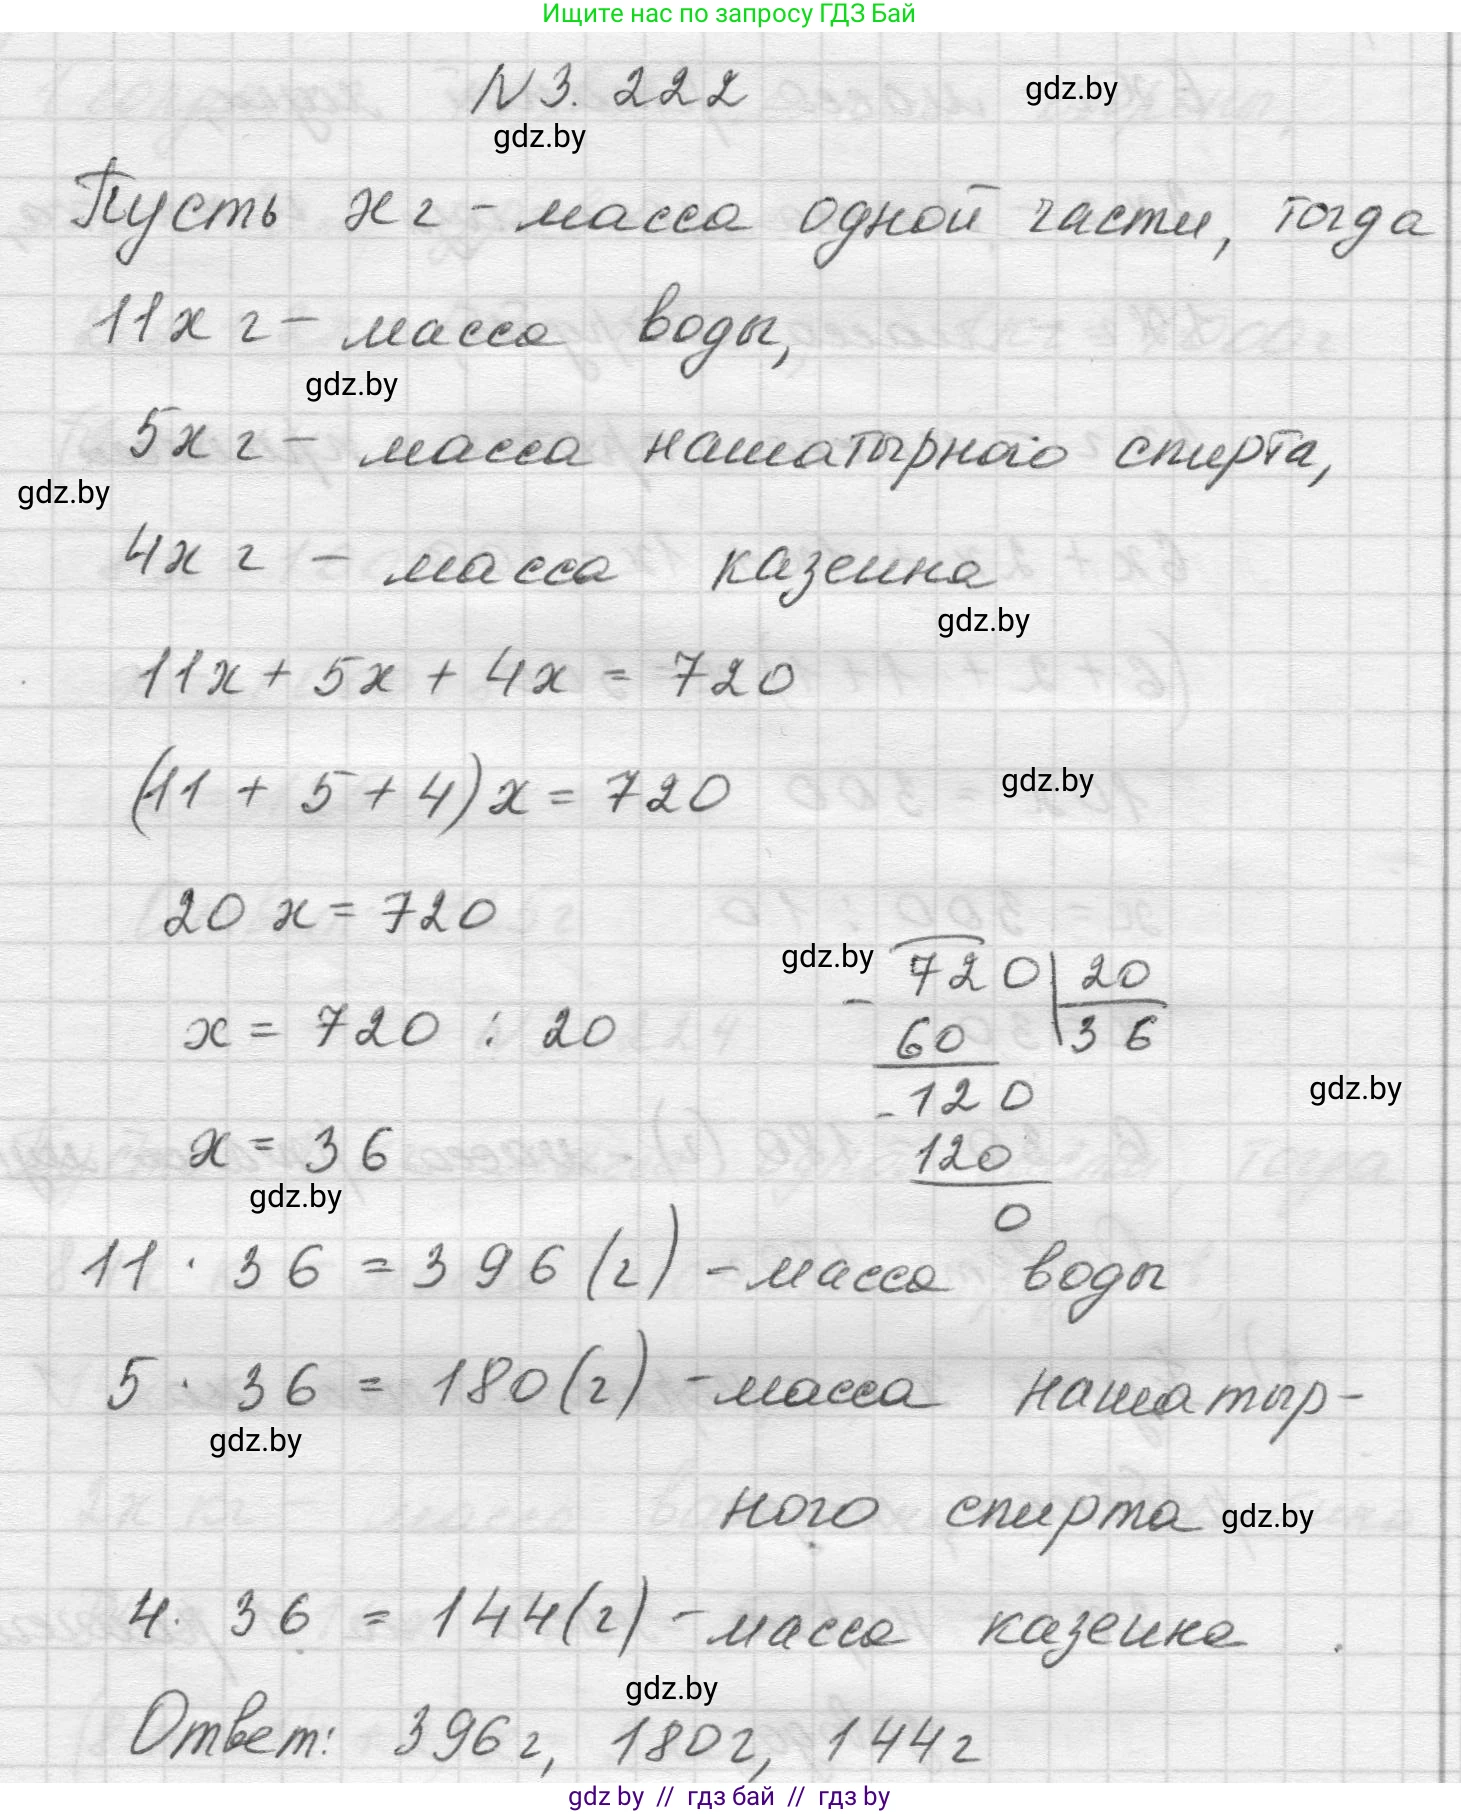 Ищите нас по запросу ГДЗ Бай
N 3. 222
gdz.by
gdz.by
Пусть x г - масса одной части, тогда
11x г - масса воды,
gdz.by
5x г - масса нашатырного спирта,
gdz.by
4x г - масса казеина
gdz.by
11x + 5x + 4x = 720
(11 + 5 + 4) x = 720
gdz.by
20 x = 720
gdz.by
720 | 20
x = 720 : 20
- 60 36
- 120
gdz.by
x = 36
120
gdz.by
0
11 · 36 = 396 (г) - масса воды
5 · 36 = 180 (г) - масса нашатыр-
gdz.by
ного спирта
gdz.by
4 · 36 = 144 (г) - масса казеина .
gdz.by
Ответ: 396 г, 180 г, 144 г
gdz by // гдз бай // гдз by